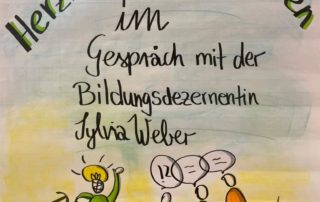 im
Gespräch mit der
Bildungsdezernentin
Sylvia Weber
!?